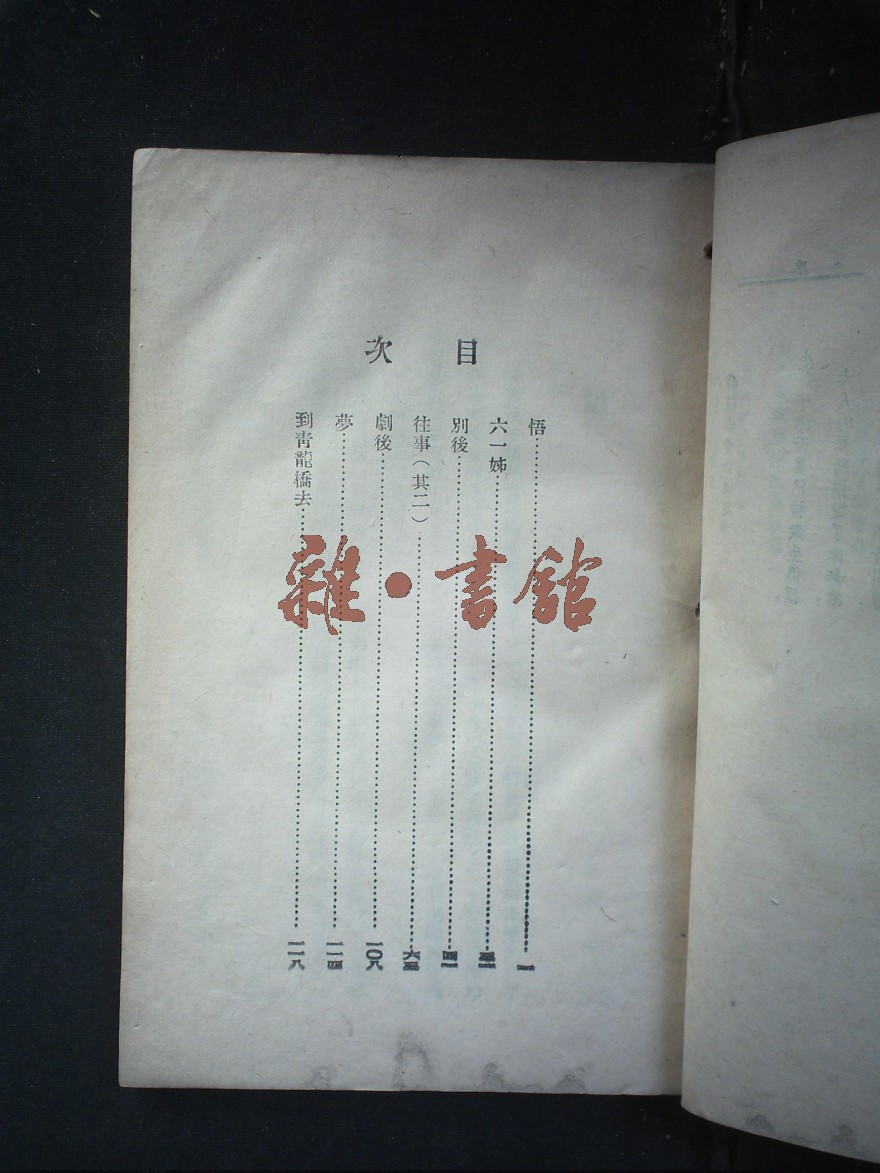 目次
悟……一
六一姊
別後……四一
往事(其二)……六五
劇後……一〇八
夢……一一四
到青龍橋去……一一八
雜·書館